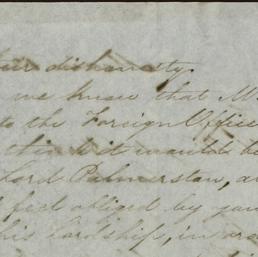 dishonesty.
we knew that M
to the Foreign Office
think it would be
Lord Palmerston, a
feel obliged by you
his Lordship, in or